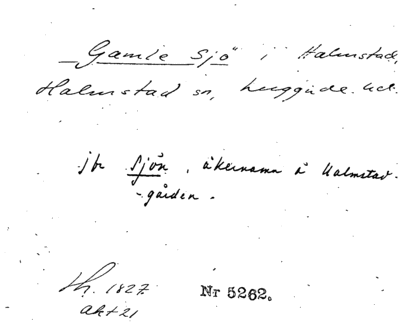 Gamle Sjö i Halmstad,
Halmstad sn, Luggude hd.
jfr Sjön, åkernamn å Halmstad-
-gården.
Lh. 1827
akt 21
Nr 5262.